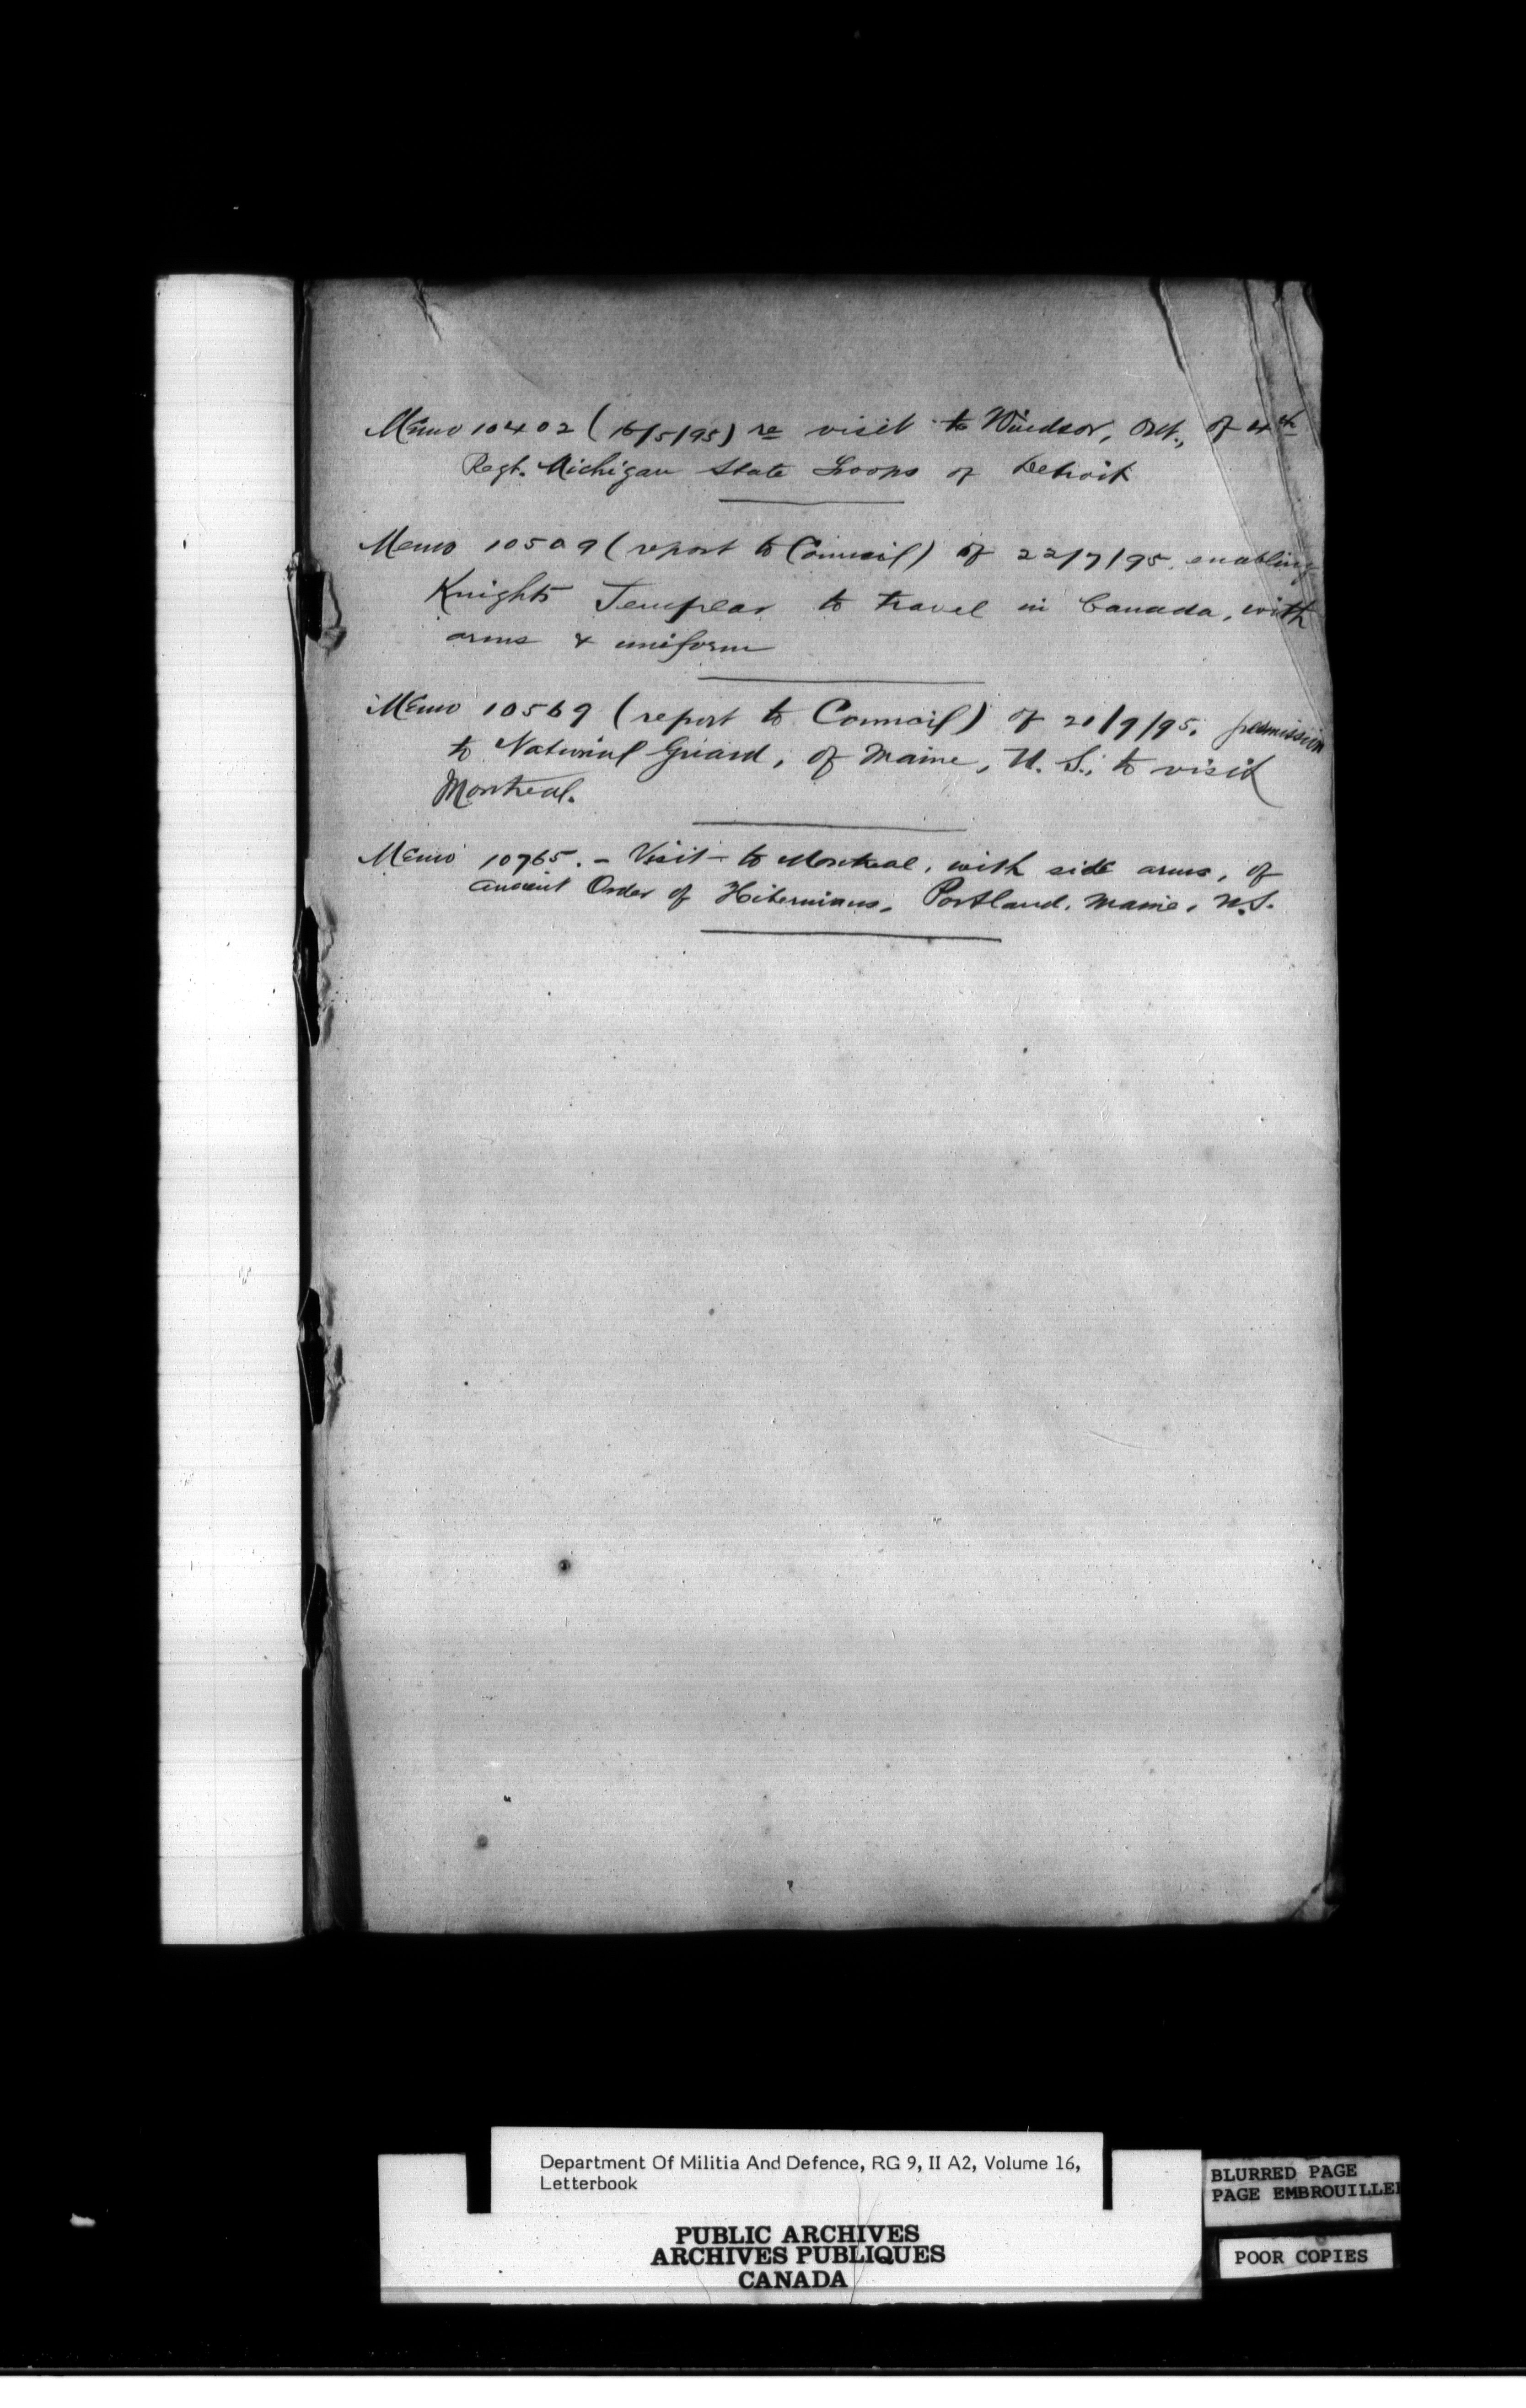 Memo 10402 (16/5/95) re visit to Windsor, Ont., of 4th
Regt. Michigan State Troops of Detroit
Memo 10509 (report to Council) of 22/7/95. enabling
Knights Templar to travel in Canada, with
arms & uniform
Memo 10569 (report to Council) of 21/9/95. permission
to National Guard, of Maine, U.S., to visit
Montreal.
Memo 10765. - Visit to Montreal, with side arms, of
Ancient Order of Hibernians, Portland, Maine, U.S.
Department Of Militia And Defence, RG 9, II A2, Volume 16,
Letterbook
PUBLIC ARCHIVES
ARCHIVES PUBLIQUES
CANADA
BLURRED PAGE
PAGE EMBROUILLEE
POOR COPIES